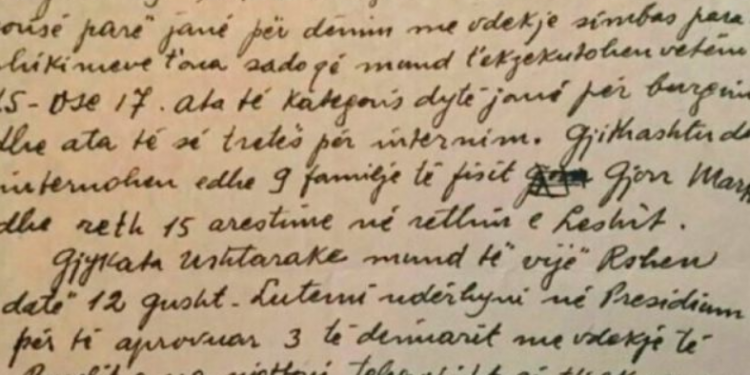 parë jane për dënim me vdekje simbas para
t'ona sado që mund t'ekzekutohen vetëm
15 - ose 17. ata të kategoris dytë jane për burgim
dhe ata të së tretës për internim. Gjithashtu do
internohen edhe 9 familje të fisit Gjon Mark
dhe reth 15 arestime në rethin e Leshit.
Gjykata Ushtarake mund të vijë Rshen
datë 12 gusht - Lutemi ndërhyni në Presidium
për të aprovuar 3 të denuarit me vdekje të